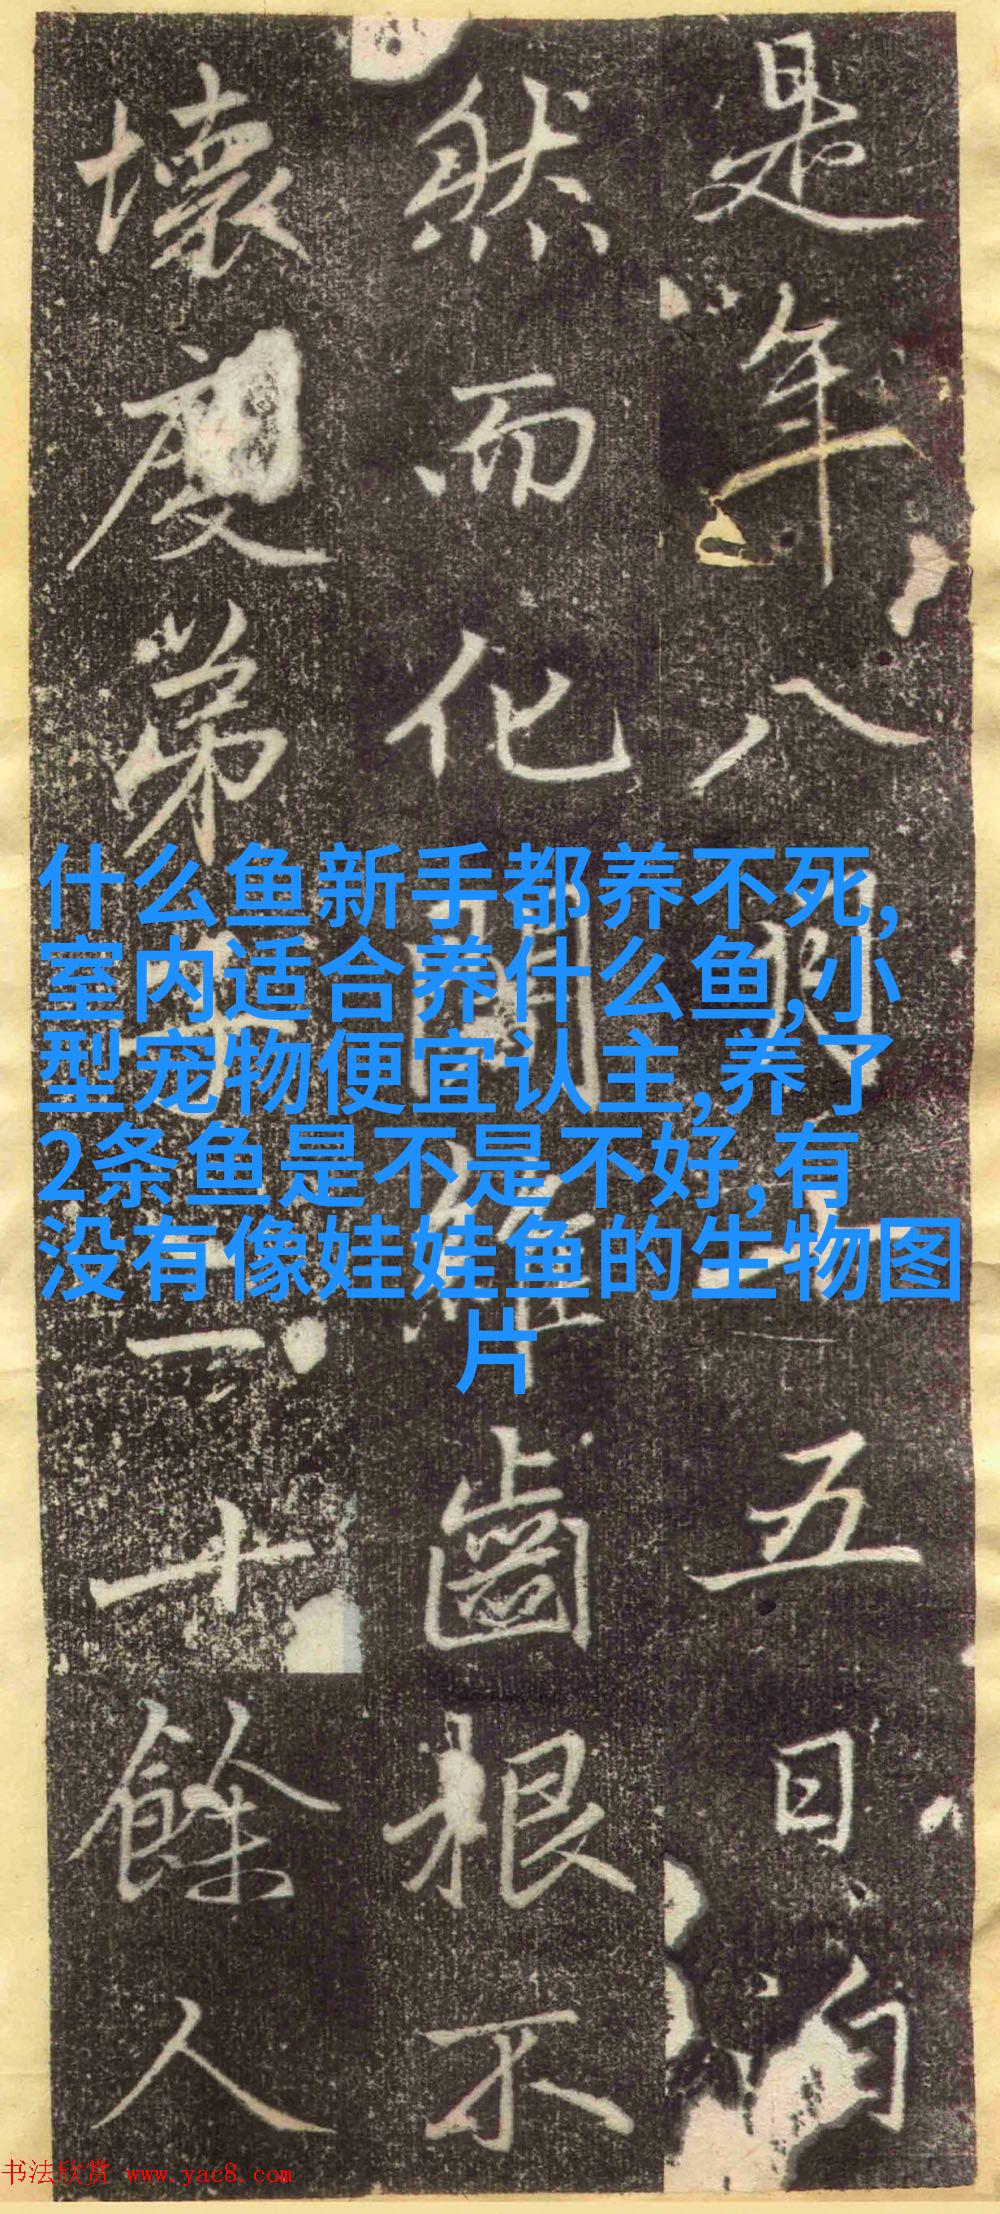 是年八月五日
然而化闍維齒根不
壞度弟子十餘人
什么鱼新手都养不死,
室内适合养什么鱼,小
型宠物便宜认主,养了
2条鱼是不是不好,有
没有像娃娃鱼的生物图
片
书法欣赏 www.yac8.com